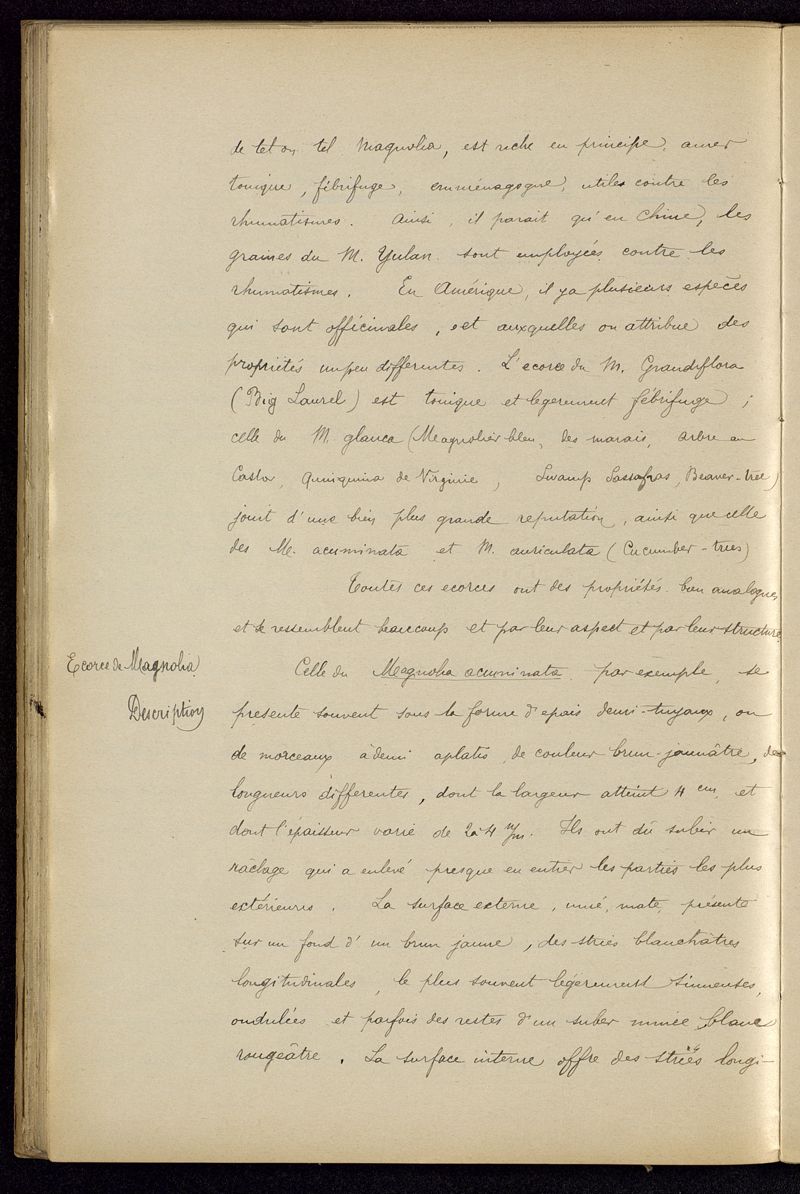 de tel ou tel Magnolia, est riche en principe amer
tonique, fébrifuge, emménagogue, utiles contre les
rhumatismes. Ainsi, il parait qu'en Chine, les
graines du M. Yulan sont employées contre les
rhumatismes. En Amérique, il y a plusieurs espèces
qui sont officinales, et auxquelles on attribue des
propriétés un peu differentes. L'ecorce du M. Grandiflora
(Big Laurel) est tonique et legerement fébrifuge ;
celle du M. glauca (Magnolier bleu, des marais, arbre au
Castor, Quinquina de Virginie, Swamp Sassafras, Beaver-tree)
jouit d'une bien plus grande reputation, ainsi que celle
des M. acuminata et M. auriculata (Cucumber-trees)
Toutes ces ecorces ont des propriétés bien analogues
et se ressemblent beaucoup et par leur aspect et par leur structure
Ecorce de Magnolia
Description
Celle du Magnolia acuminata par exemple, se
présente souvent sous la forme d'epais demi-tuyaux, ou
de morceaux à demi aplatis, de couleur brun-jaunâtre, de
longueurs differentes, dont la largeur atteint 4 cm, et
dont l'épaisseur varie de 2 à 4 m/m. Ils ont dû subir un
raclage qui a enlevé presque en entier les parties les plus
extérieures. La surface externe, unie, mate, présente
sur un fond d'un brun jaune, des stries blanchâtres
longitudinales, le plus souvent légerement sinueuses,
ondulées et parfois des restes d'un suber mince blanc
rougeâtre. La surface interne offre des stries longi-